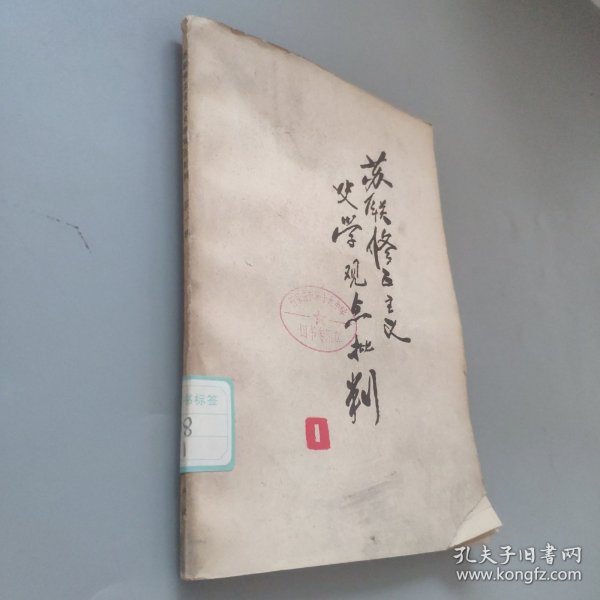 苏联修正主义
史学观点批判
1
书标签
8
1
孔夫子旧书网
www.kongfz.com